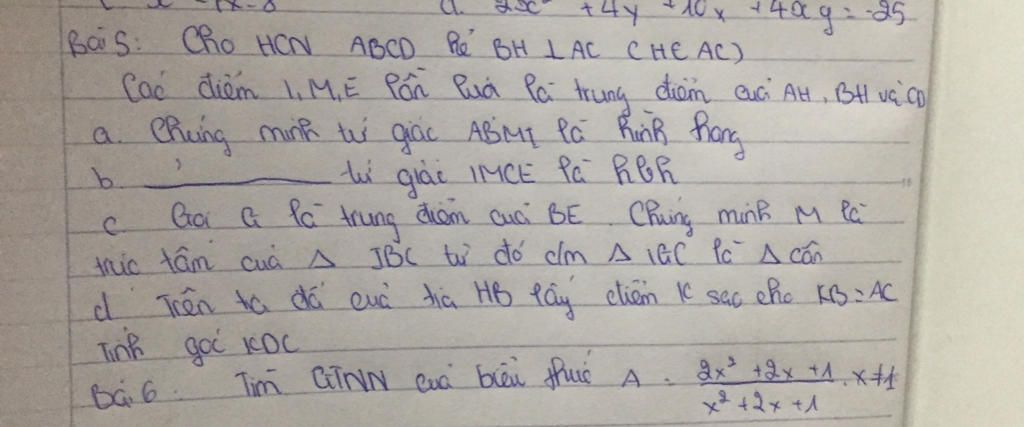 a. 2x² + 4y² + 10x + 4xy = -25
Bài 5: Cho HCN ABCD kẻ BH ⊥ AC (H ∈ AC)
Các điểm I, M, E lần lượt là trung điểm của AH, BH và CD
a. Chứng minh tứ giác ABMI là hình thang
b. ———— tứ giác IMCE là hbh
c. Gọi G là trung điểm của BE. Chứng minh M là
trực tâm của Δ IBC từ đó c/m Δ IGC là Δ cân
d. Trên tia đối của tia HB lấy điểm K sao cho KB = AC
Tính góc KDC
Bài 6. Tìm GTNN của biểu thức A = (2x² + 2x + 1)/(x² + 2x + 1) . x ≠ 1